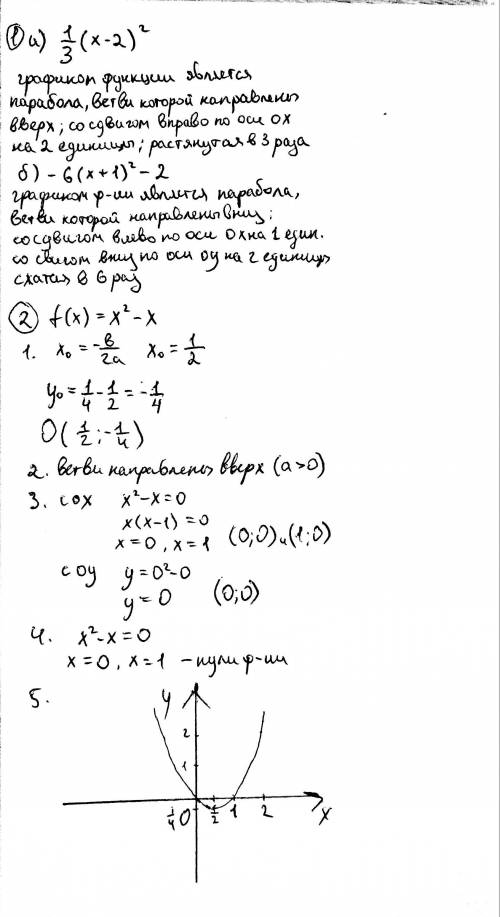 ① а) 1/3 (x-2)²
графиком функции является
парабола, ветви которой направлены
вверх; со сдвигом вправо по оси OX
на 2 единицы; растянутая в 3 раза
б) -6(x+1)²-2
графиком ф-ии является парабола,
ветви которой направлены вниз;
со сдвигом влево по оси OX на 1 един.
со свигом вниз по оси OY на 2 единицы
сжатая в 6 раз
② f(x) = x²-x
1. x₀ = -в/2a x₀ = 1/2
y₀ = 1/4 - 1/2 = -1/4
O(1/2; -1/4)
2. Ветви направлены вверх (a>0)
3. с ox x²-x=0
x(x-1)=0
x=0, x=1 (0;0) и (1;0)
с oy y=0²-0
y=0 (0;0)
4. x²-x=0
x=0, x=1 - нули ф-ии
5. y
2
1
1/4 0 1/2 1 2 x